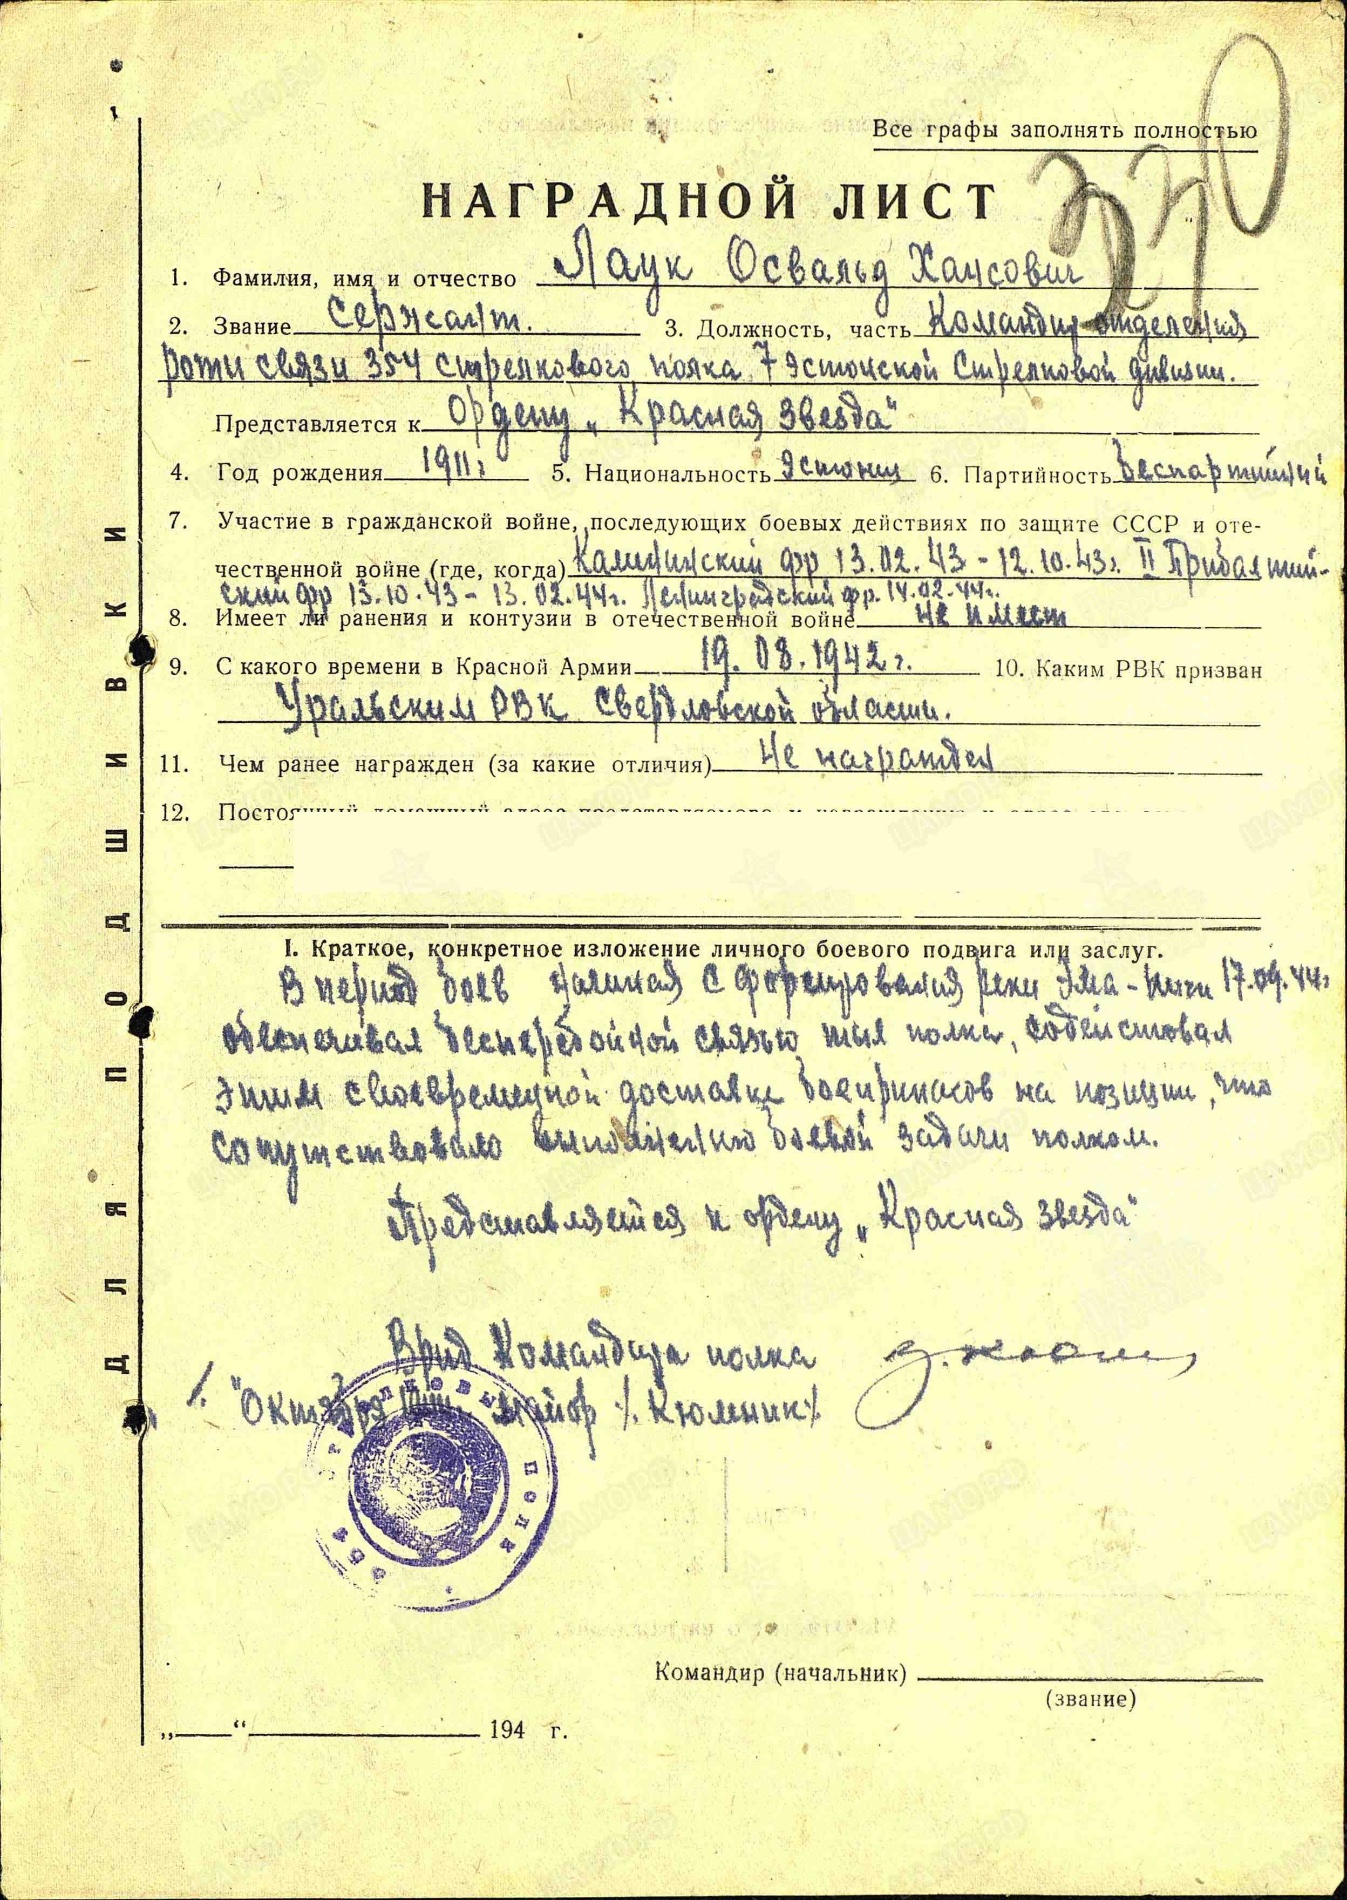 330
Все графы заполнять полностью
НАГРАДНОЙ ЛИСТ
1. Фамилия, имя и отчество Лаук Освальд Хансович
2. Звание Сержант. 3. Должность, часть Командир отделения
роти связи 354 стрелкового полка 7 Эстонской Стрелковой дивизии.
Представляется к ордену „Красная Звезда“
4. Год рождения 1911г 5. Национальность Эстонец 6. Партийность Беспартийний
7. Участие в гражданской войне, последующих боевых действиях по защите СССР и оте-
чественной войне (где, когда) Калининский фр 13.02.43 - 12.10.43г. II Прибалтий-
ский фр 13.10.43 - 13.02.44г. Ленинградский фр. 14.02.44г.
8. Имеет ли ранения и контузии в отечественной войне не имеет
9. С какого времени в Красной Армии 19.08.1942г. 10. Каким РВК призван
Уральским РВК Свердловской области.
11. Чем ранее награжден (за какие отличия) Не награжден
12. Постоянный домашний адрес представляемого к награждению и адрес его
I. Краткое, конкретное изложение личного боевого подвига или заслуг.
В период боев начиная с форсирования реки Эма-Йиги 17.09.44г
обеспечивал бесперебойной связью тыл полка, содействовал
этим своевременной доставке боеприпасов на позиции, что
сопутствовало выполнению боевой задачи полком.
Представляется к ордену „Красная Звезда“
Врид Командира полка
1. "Октября 1944г. майор /. Кюмник/
354 стрелковый полк
Командир (начальник)
(звание)
„ “ 194 г.
ДЛЯ ПОДШИВКИ
ЦАМО РФ